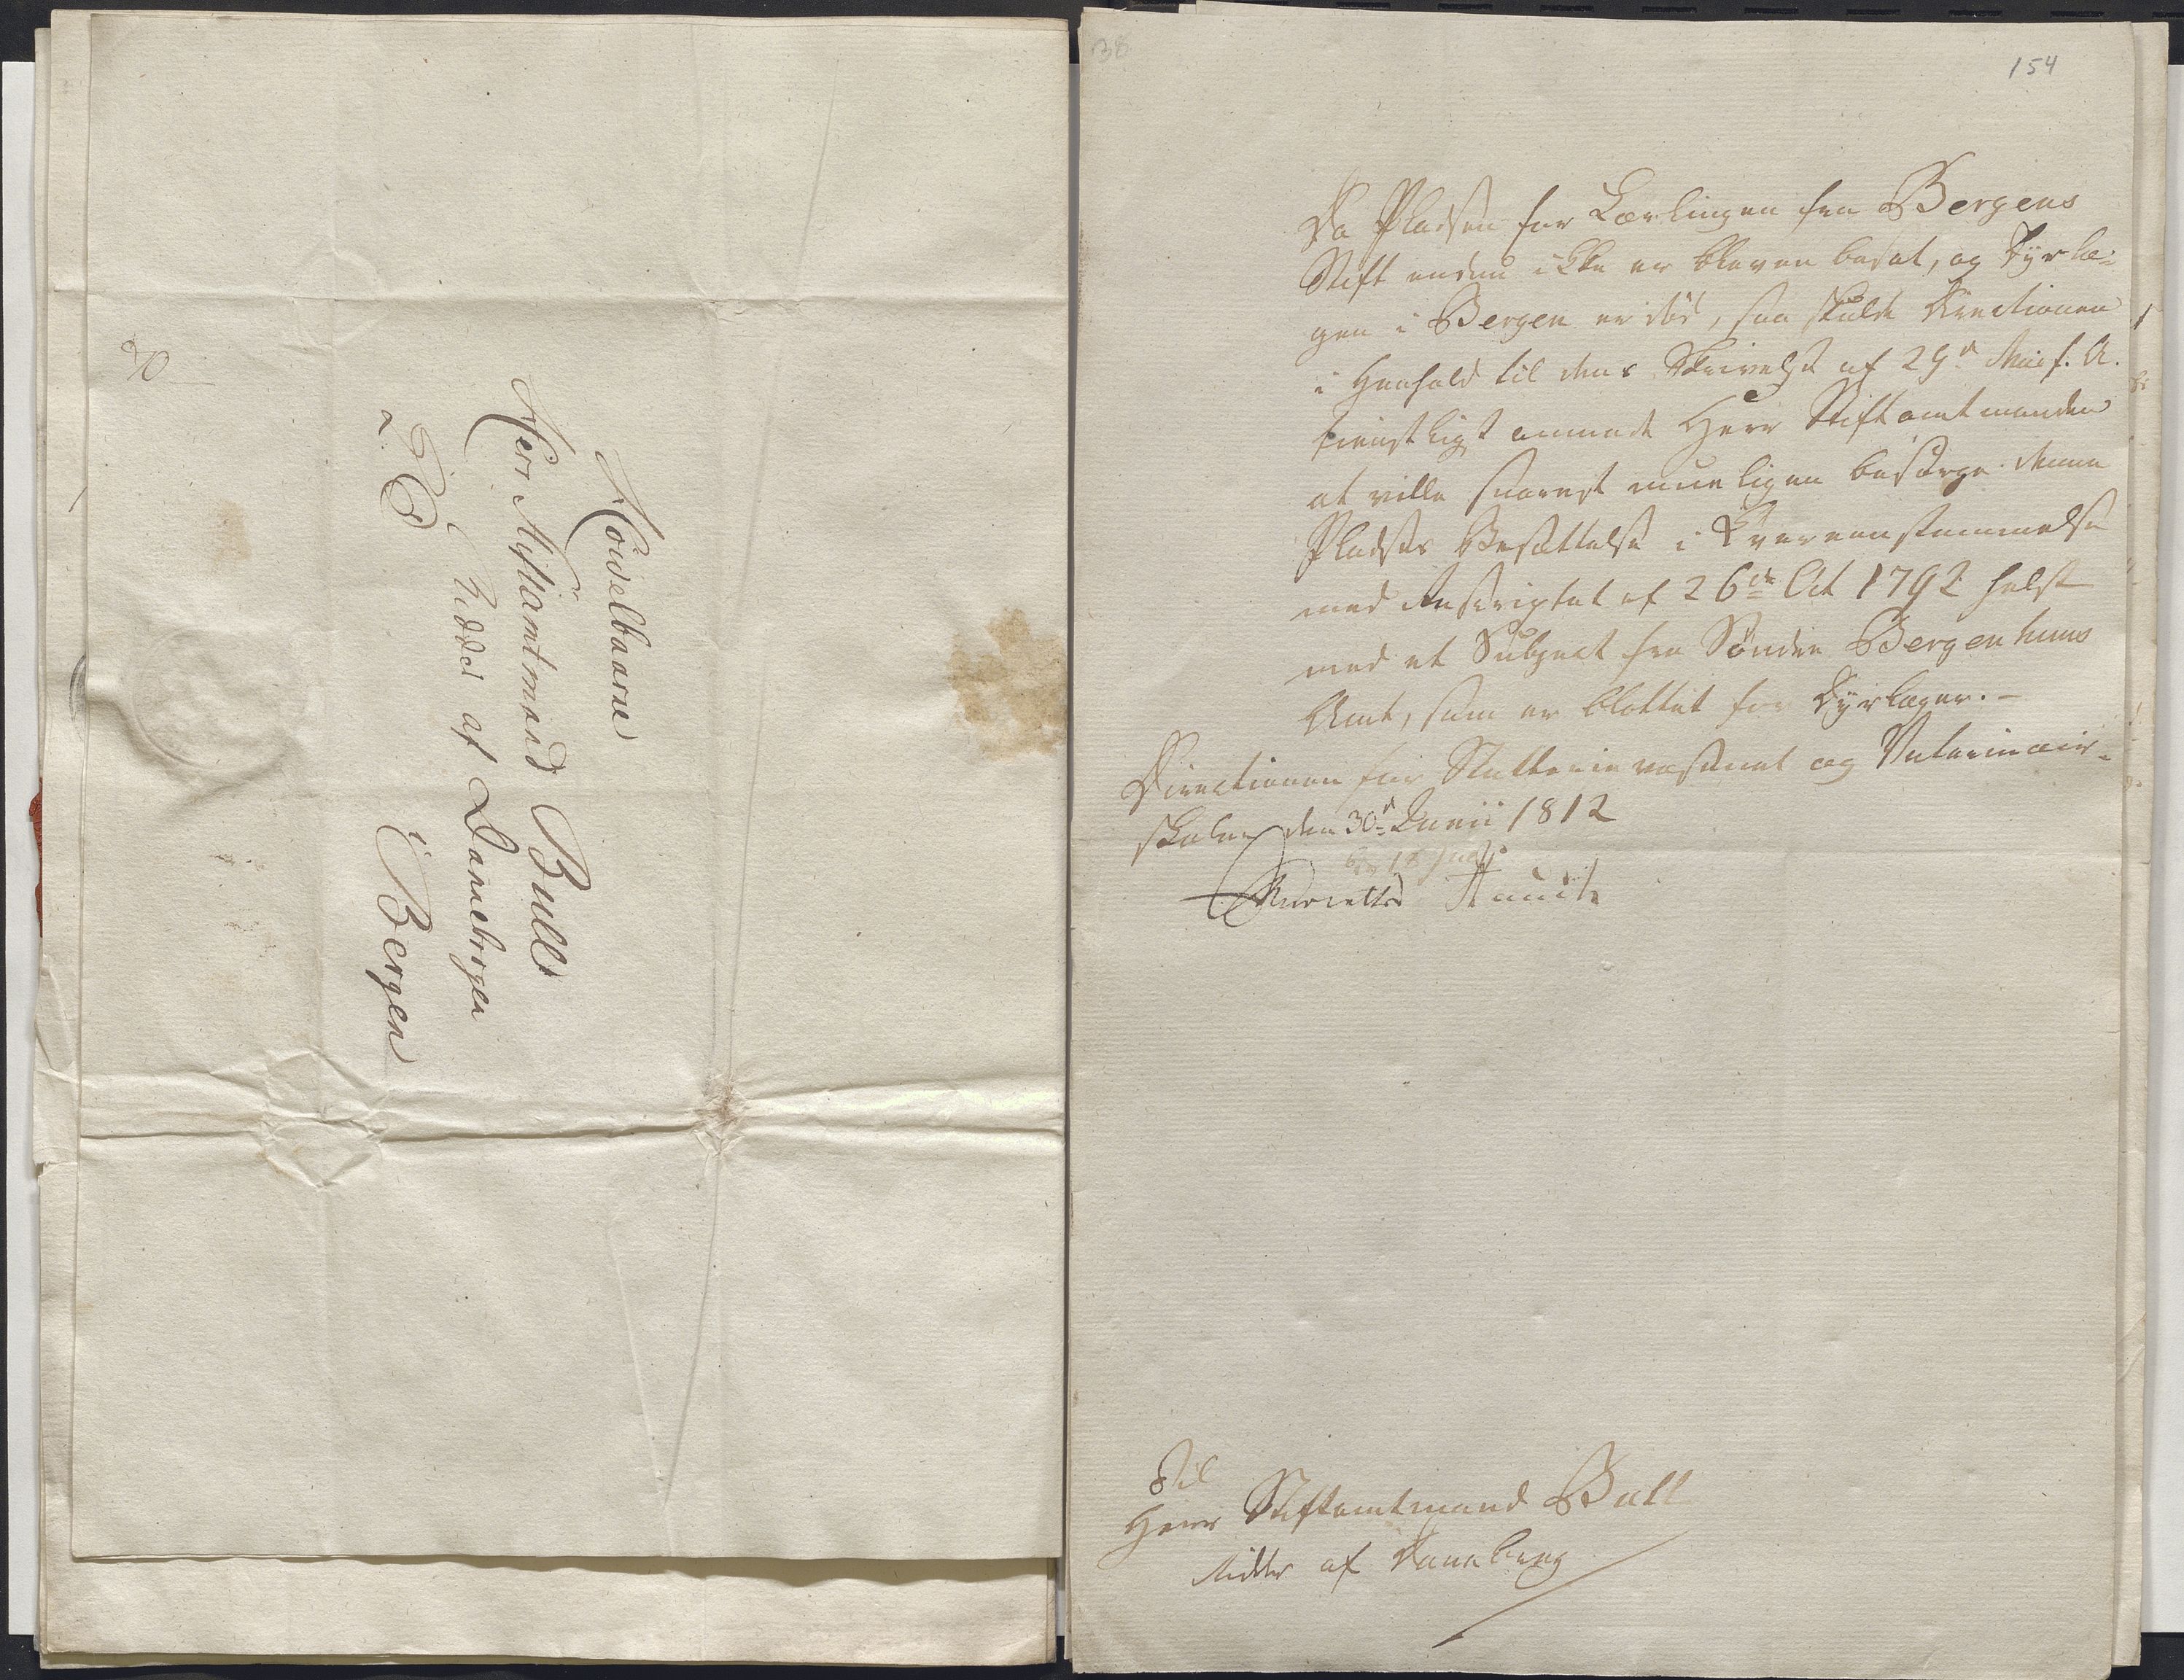 Høivelbaarne
Herr Stiftamtmand Bull
Ridder af Dannebrogen
i Bergen
38
154
Da Pladsen for Lærlingen fra Bergens
Stift endnu ikke er bleven besat, og Dyrlæ-
gen i Bergen er død, saa skulde Directionen
i Henhold til dens Skrivelse af 29d Mai f. A.
tienstligst anmode Herr Stiftamtmanden
at ville snarest mueligen besørge denne
Pladses Besættelse i Overeensstemmelse
med Rescriptet af 26de Oct 1792 helst
med et Subject fra Søndre Bergenhuus
Amt, som er blottet for Dyrlæger. -
Directionen for Stutterievæsenet og Veterinair-
skolen den 30d Junii 1812
Hauch
Til
Herr Stiftamtmand Bull
Ridder af Dannebrog